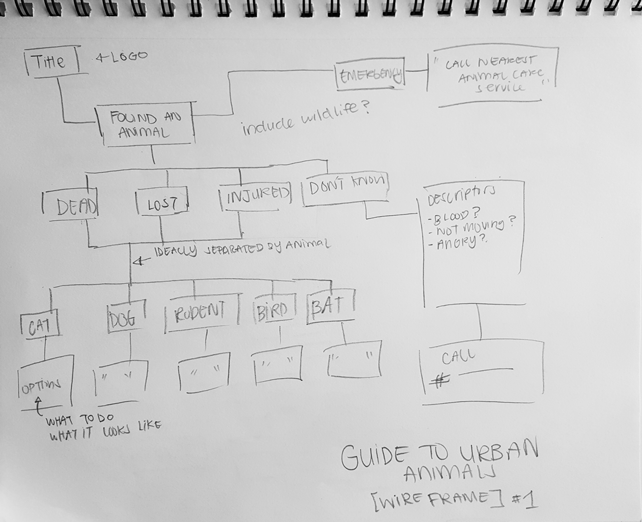 Title
← LOGO
EMERGENCY
"CALL NEAREST
ANIMAL CARE
SERVICE"
FOUND AN
ANIMAL
include wildlife?
DEAD
LOST
INJURED
DON'T KNOW
DESCRIPTORS
- BLOOD?
- NOT MOVING?
- ANGRY?
← IDEALLY SEPARATED BY ANIMAL
CAT
DOG
RODENT
BIRD
BAT
OPTIONS
" "
" "
" "
" "
WHAT TO DO
WHAT IT LOOKS LIKE
CALL
#
GUIDE TO URBAN
ANIMALS
[WIREFRAME] #1